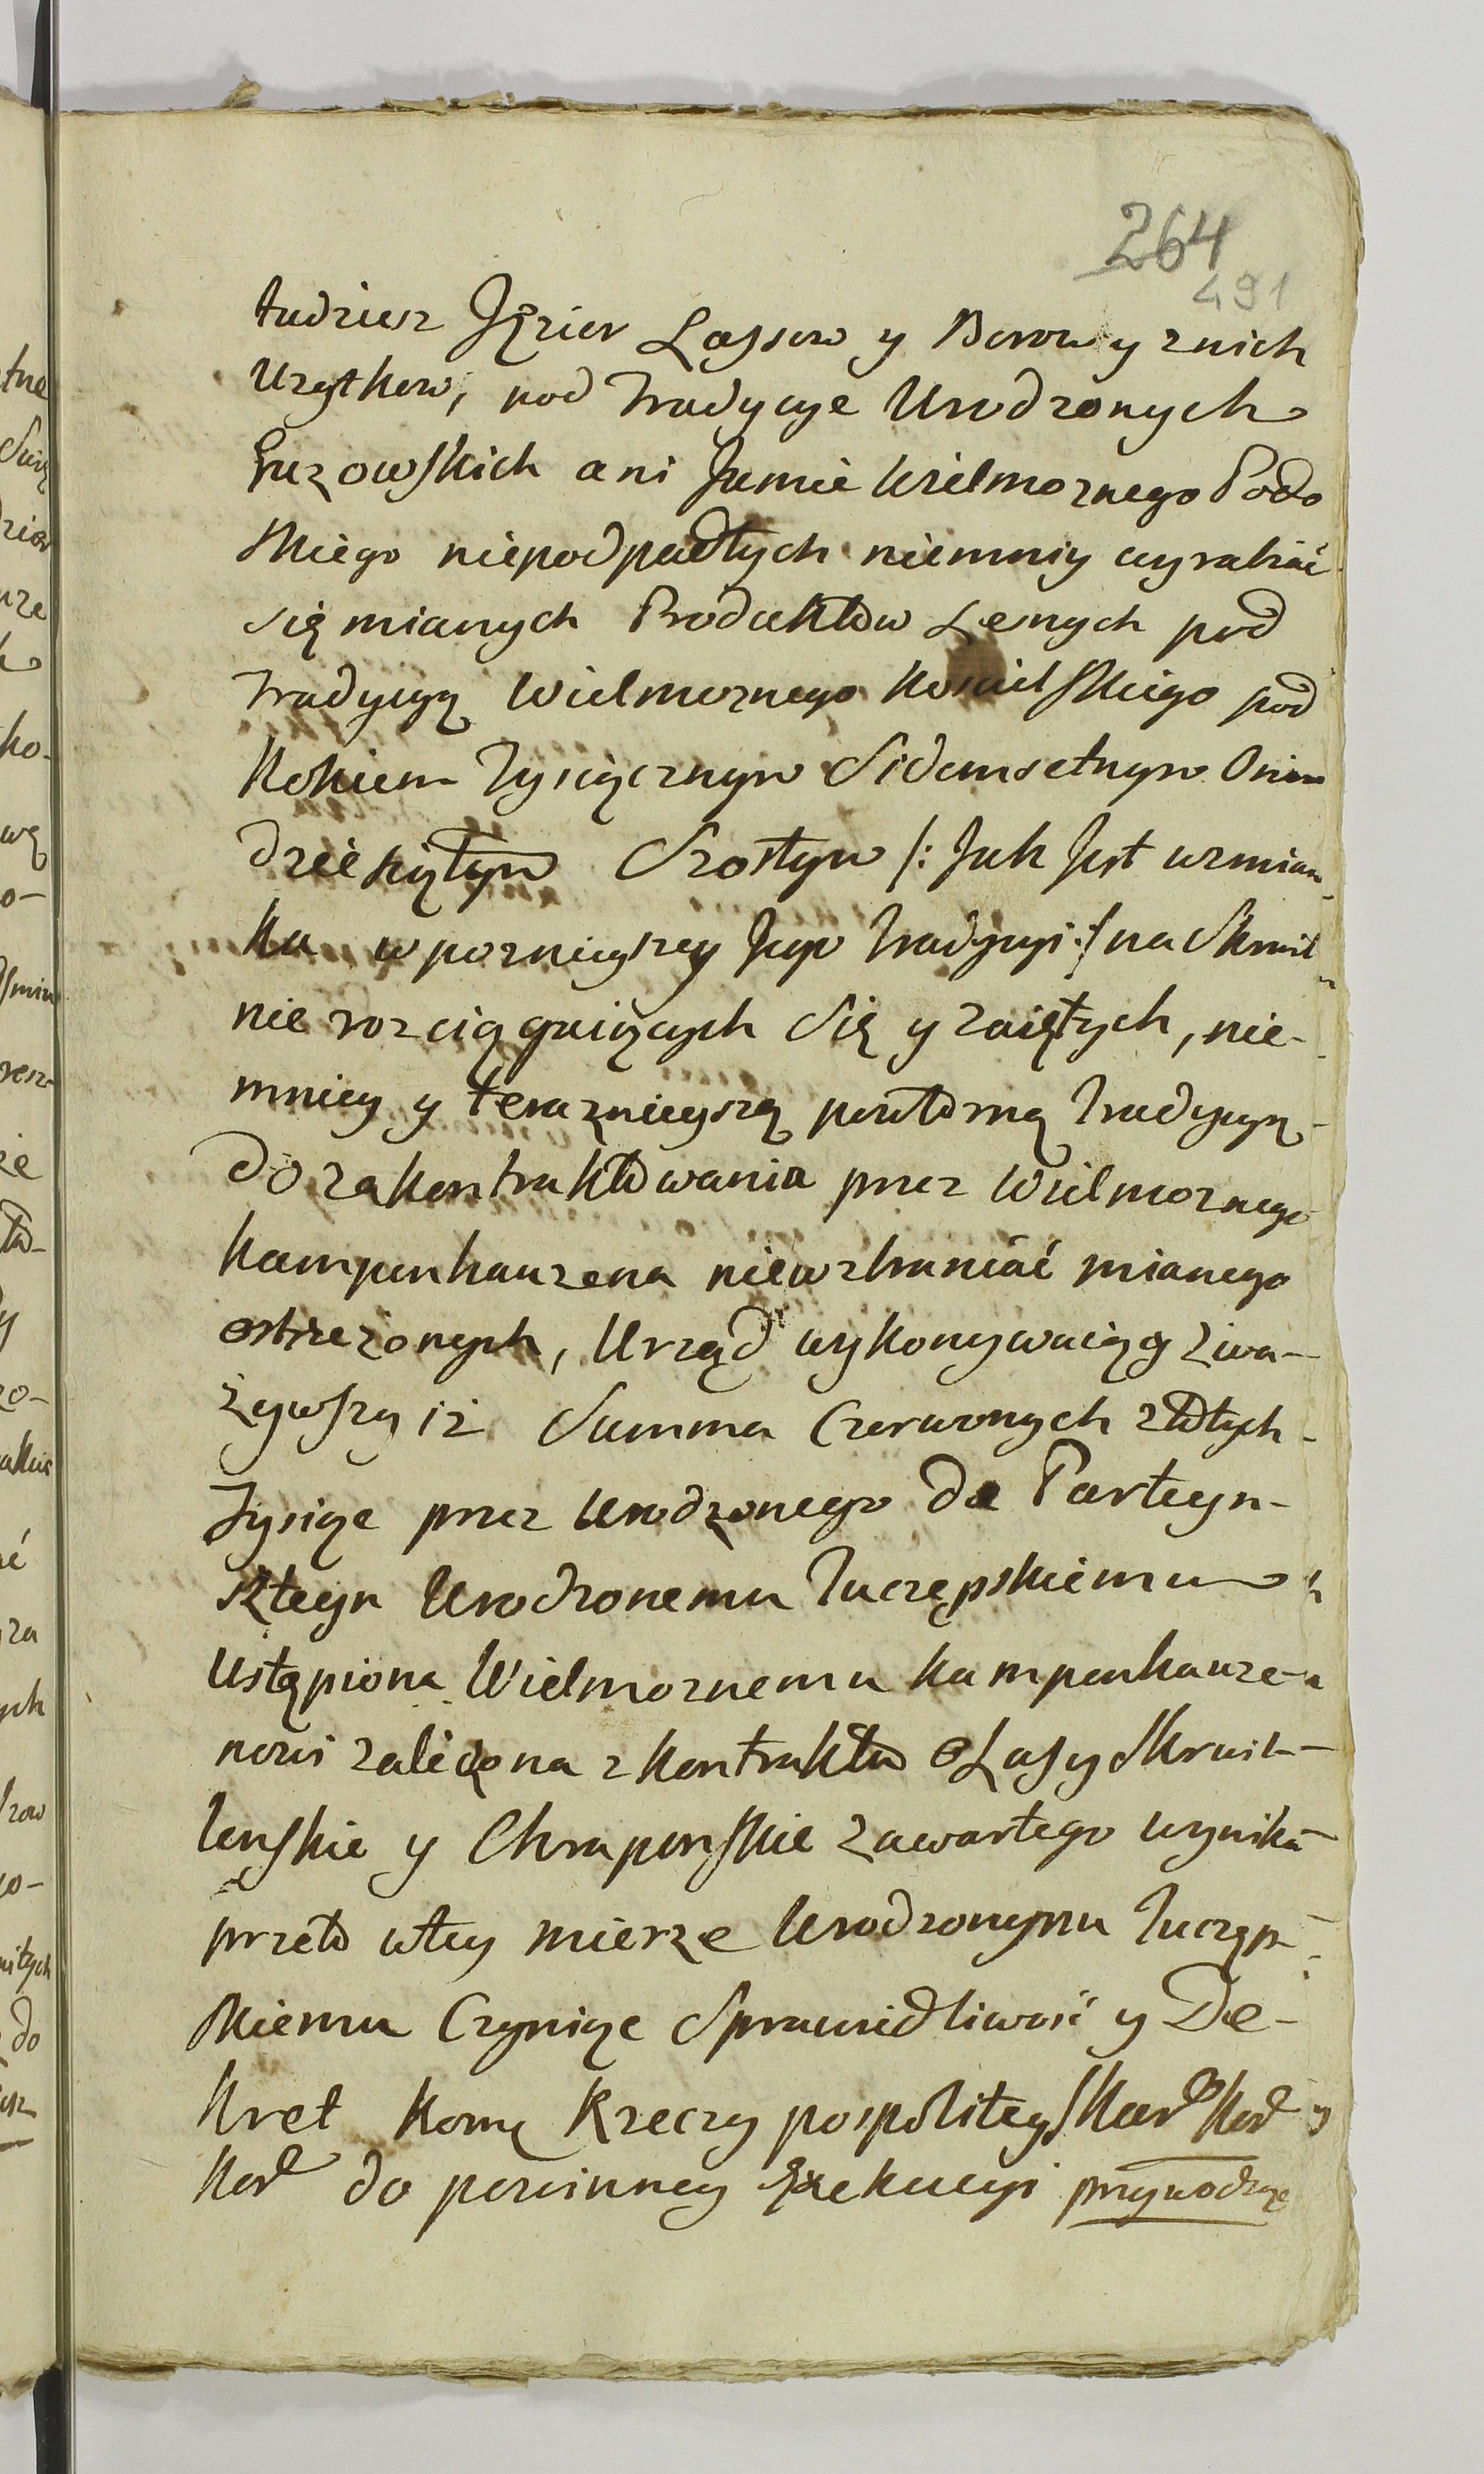 264
491
tudziesz Jęzior Lassow y Borow y z nich
Uzytkow, pod Tradycye Urodzonych
Guzowskich ani Jemie Wielmoznego Podo
skiego niepodpadłych niemniy wyrabiać
się mianych Produktow Lesnych pod
Tradycyą Wielmoznego Kosielskiego pod
Rokiem Tysiącznym Sidemsetnym Osiem
dziesiątym Szostym /: Jak Jest wzmian-
ka w pozniejszey Jego Tradycyi :/ na Skwil
nie rozciągaiących Się y zaiętych, nie-
mniey y terazniejszą powtorną Tradycyą
do zakontraktowania przez Wielmoznego
Kampenhauzena niewzbraniać mianego
ostrzezonych, Urząd wykonywaiący zwa-
zywszy iz Summa Czerwonych złotych
Tysiąc przez Urodzonego De Parteyn-
szteyn Urodzonemu Tuczępskiemu
Ustąpiona Wielmoznemu Kampenhauze-
nowi zaliczona z kontraktu o Lasy Skwil-
lenskie y Chraponskie zawartego wynika
przeto w tey mierze Urodzonemu Tuczęp-
skiemu Czyniąc Sprawiedliwość y De-
kret Kom Rzeczy pospolitey Skar Kor y
Kor do powinney Exekucyi przywodząc